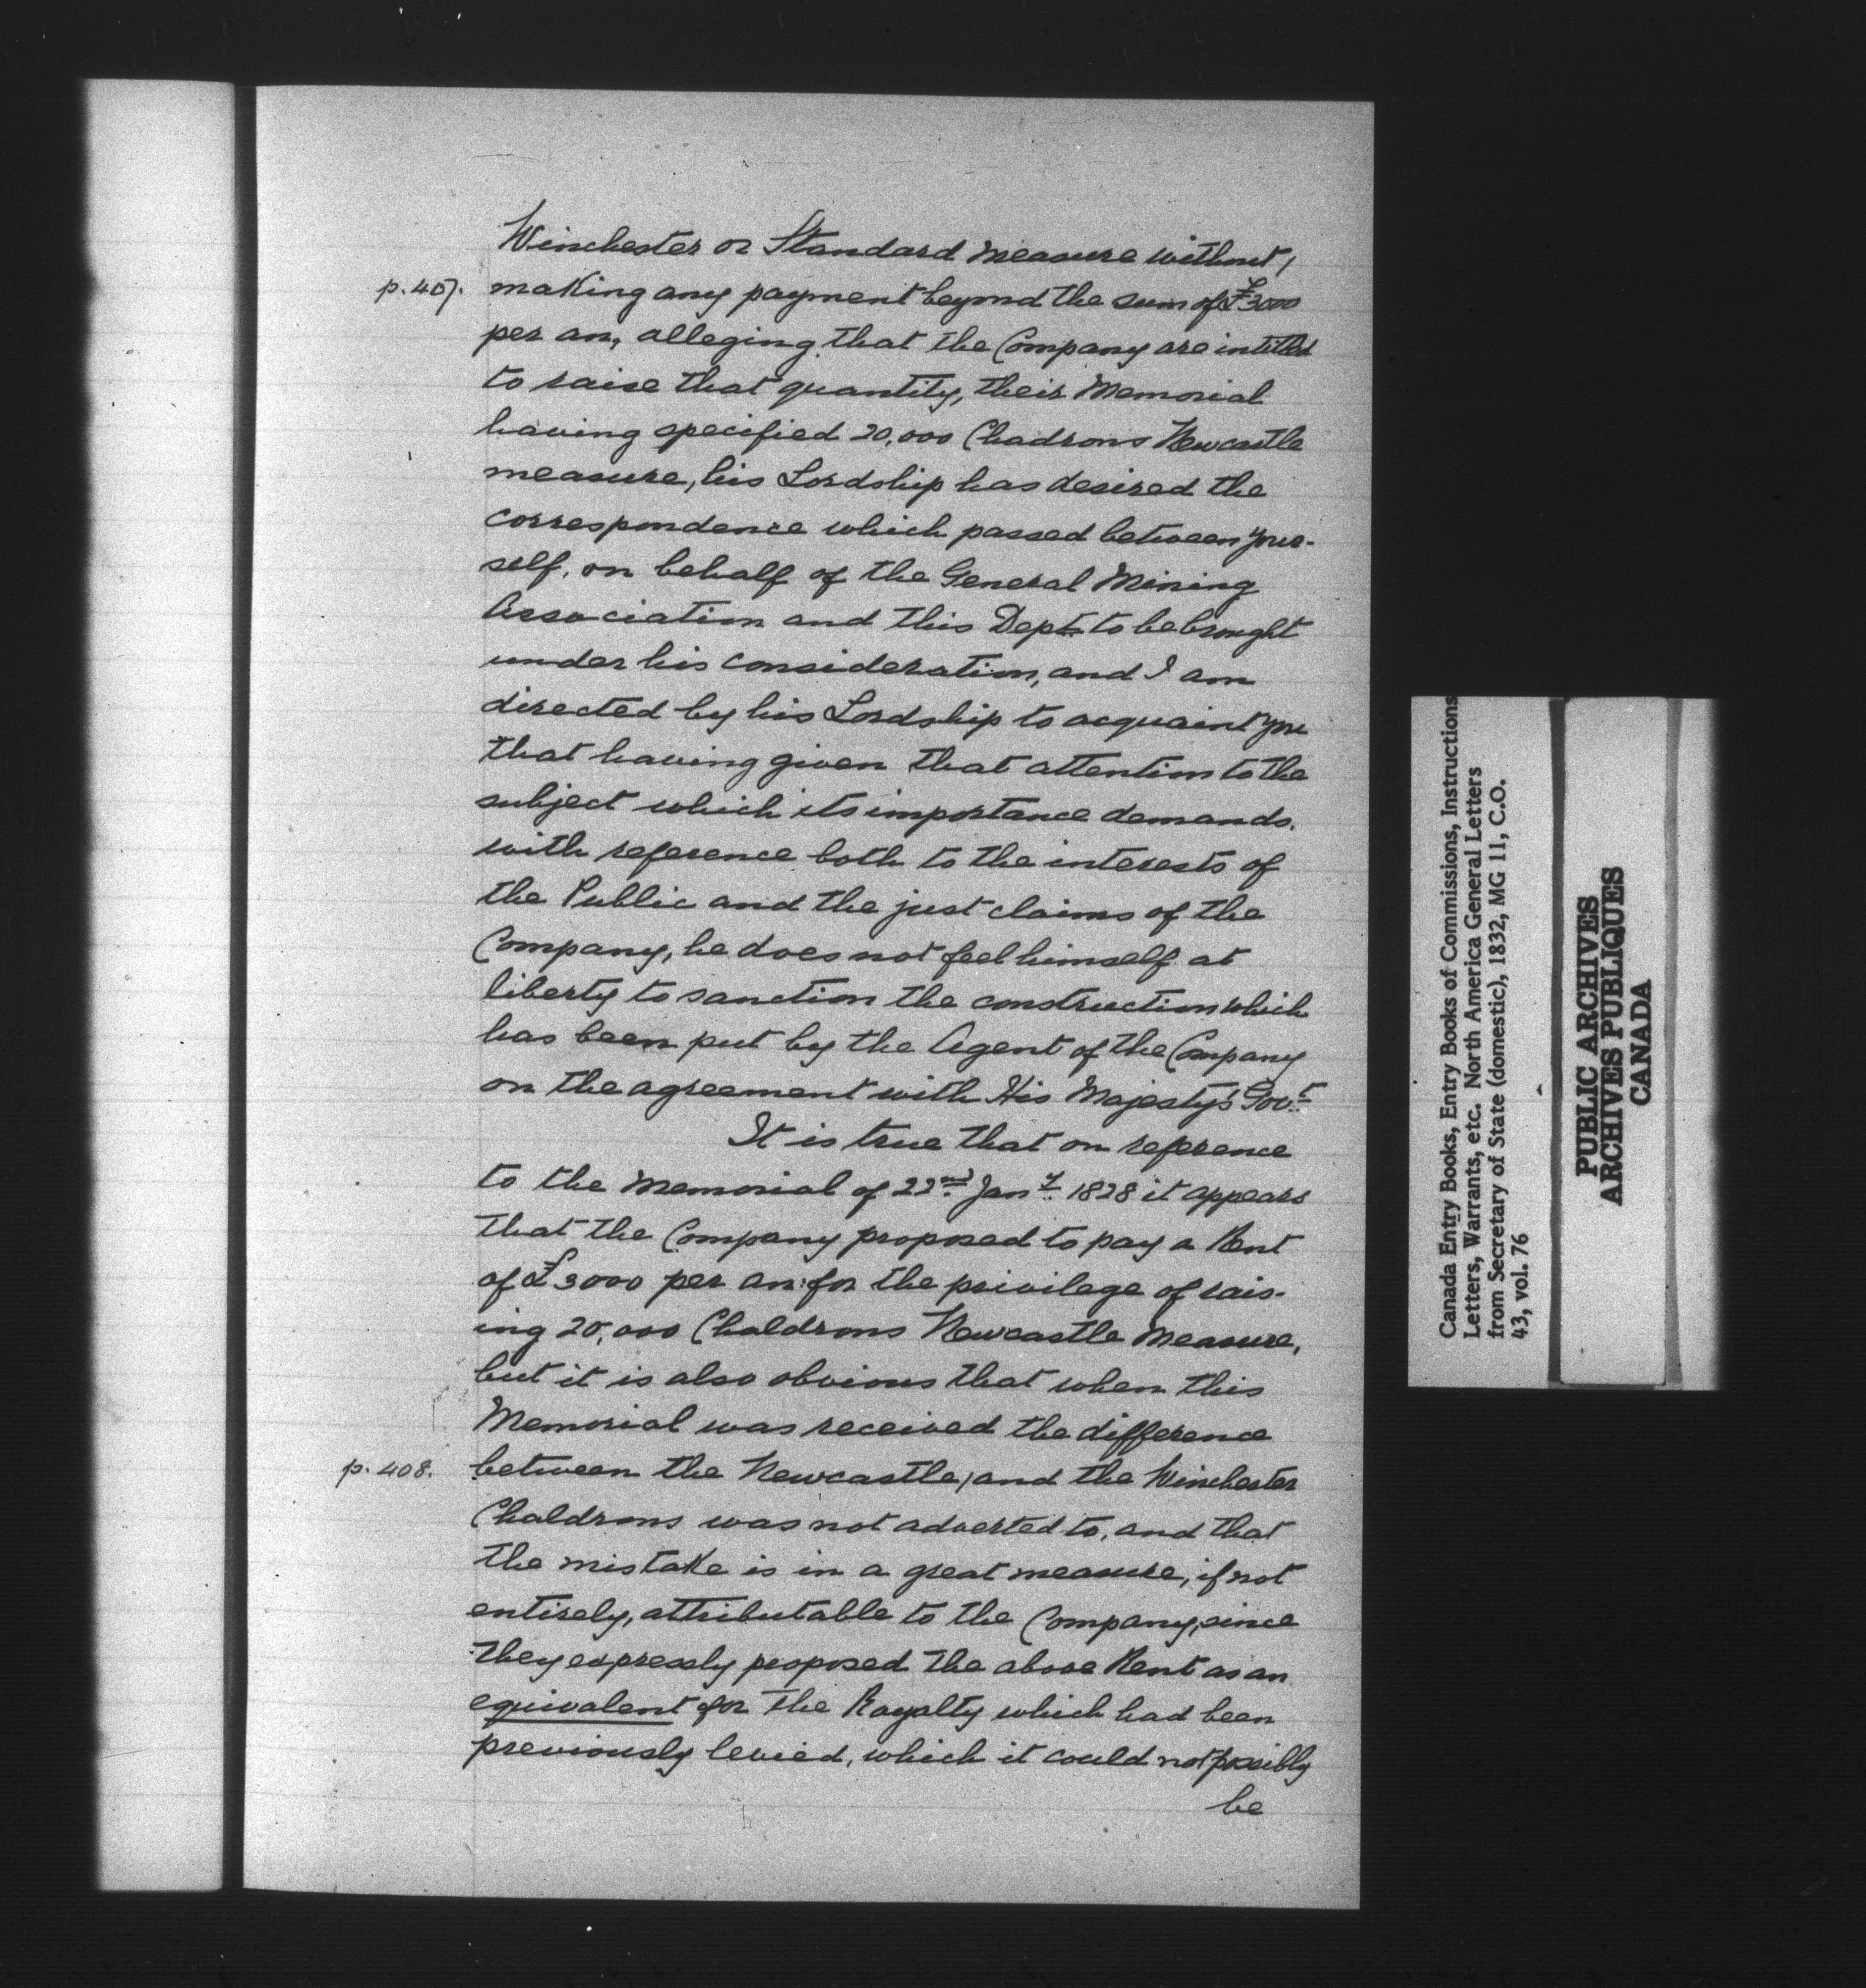 Winchester or Standard measure without/
p. 407. making any payment beyond the sum of £3000
per an, alleging that the Company are intitled
to raise that quantity, their Memorial
having specified 20,000 Chadrons Newcastle
measure, his Lordship has desired the
correspondence which passed between your-
self, on behalf of the General Mining
Association and this Dept. to be brought
under his consideration, and I am
directed by his Lordship to acquaint you
that having given that attention to the
subject which its importance demands,
with reference both to the interests of
the Public and the just claims of the
Company, he does not feel himself at
liberty to sanction the construction which
has been put by the Agent of the Company
on the agreement with His Majesty's Govt.
It is true that on reference
to the Memorial of 22nd Jany. 1828 it appears
that the Company proposed to pay a Rent
of £3000 per an: for the privilege of rais-
ing 20,000 Chaldrons Newcastle Measure,
but it is also obvious that when this
Memorial was received the difference
p. 408. between the Newcastle/and the Winchester
Chaldrons was not adverted to, and that
the mistake is in a great measure, if not
entirely, attributable to the Company, since
they expressly proposed the above Rent as an
equivalent for the Royalty which had been
previously levied, which it could not possibly
be
Canada Entry Books, Entry Books of Commissions, Instructions
Letters, Warrants, etc. North America General Letters
from Secretary of State (domestic), 1832, MG 11, C.O.
43, vol. 76
PUBLIC ARCHIVES
ARCHIVES PUBLIQUES
CANADA